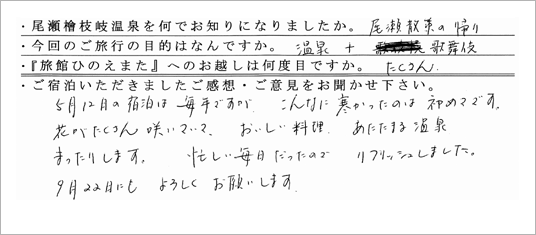 ・尾瀬檜枝岐温泉を何でお知りになりましたか。 尾瀬散策の帰り
・今回のご旅行の目的はなんですか。 温泉 + 歌舞伎
・『旅館ひのえまた』へのお越しは何度目ですか。 たくさん.
・ご宿泊いただきましたご感想・ご意見をお聞かせ下さい。
5月12日の宿泊は毎年ですが、こんなに寒かったのは初めてです。
花がたくさん咲いていて、おいしい料理、あたたまる温泉
まったりします。 忙しい毎日だったので リフリッシュしました。
9月22日にも よろしく お願いします.